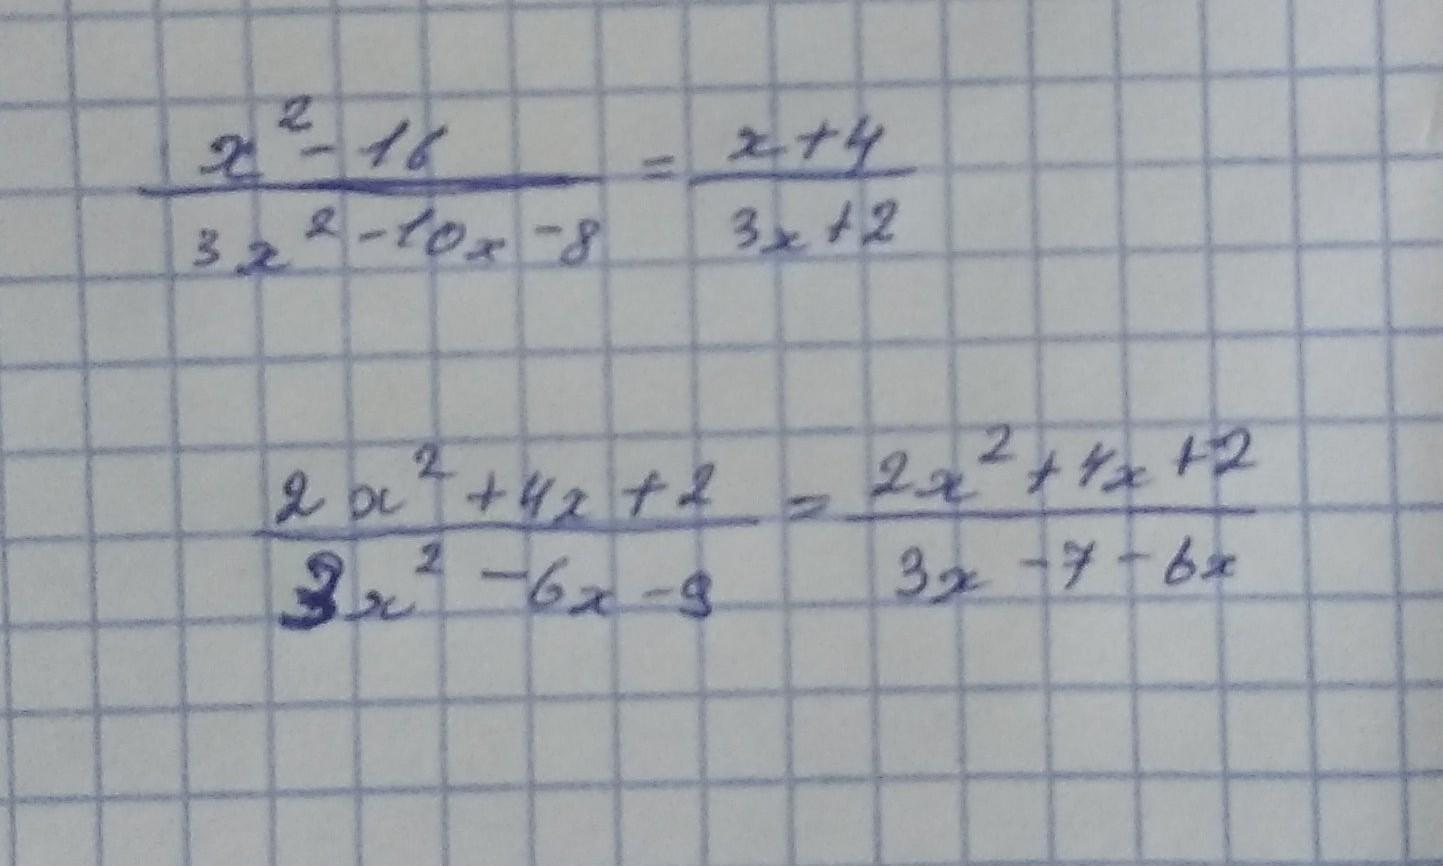 x² - 16
3x² - 10x - 8
=
x + 4
3x + 2
2x² + 4x + 2
3x² - 6x - 9
=
2x² + 4x + 2
3x - 7 - 6x